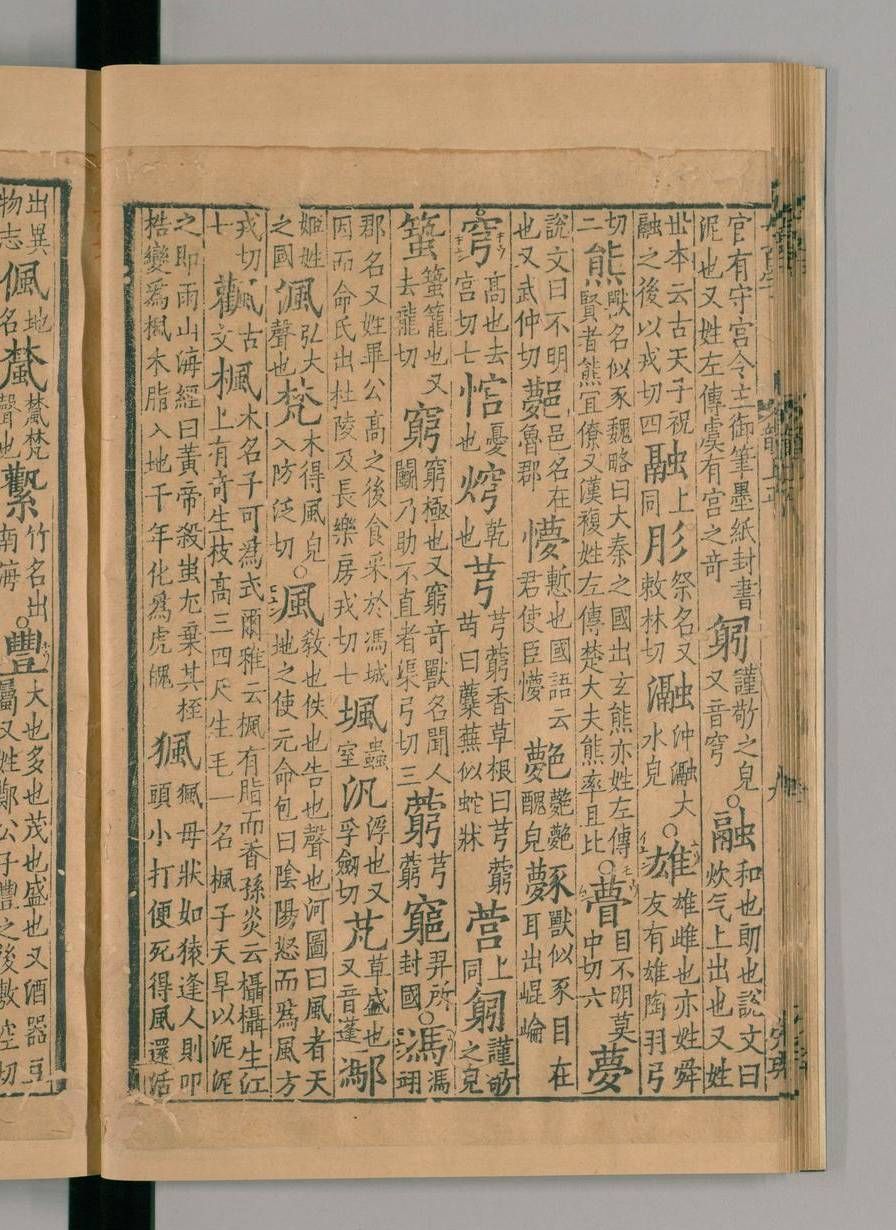 官有守宮令主御筆墨紙封書泥也又姓左傳虞有宮之奇躬謹敬之皃又音穹○融和也朗也說文曰炊气上出也又姓
丗本云古天子祝融之後以戎切四螎上同肜祭名又敕林切瀜沖瀜大水皃○雄雄雌也亦姓舜友有雄陶羽弓
切二熊獸名似豕魏略曰大秦之國出玄熊亦姓左傳賢者熊宜僚又漢複姓左傳楚大夫熊率且比○瞢目不明莫中切六夢
說文曰不明也又武仲切鄸邑名在魯郡懜慙也國語云君使臣懜醜皃獸似豕目在耳出崐崘
○穹高也去宮切七㤨憂也焪乾也芎芎藭香草根曰芎藭苗曰蘪蕪似蛇牀营上同躬謹敬之皃
籠也又去龍切窮窮極也又窮奇獸名聞人鬭乃助不直者渠弓切三藭芎藭竆羿所封國○馮馮翊
郡名又姓畢公高之後食采於馮城因而命氏出杜陵及長樂房戎切七堸蟲室汎浮也又孚劒切芃草盛也又音蓬
姬姓之國渢弘大聲也梵木得風皃又防泛切○風教也佚也告也聲也河圖曰風者天地之使元命包曰陰陽怒而爲風方
戎切七飌古文楓木名子可爲式爾雅云楓有脂而香孫炎云欇欇生江上有奇生枝高三四尺生毛一名楓子天旱以泥泥
之即雨山海經曰黃帝殺蚩尤棄其桎梏變爲楓木脂入地千年化爲虎魄猦猦母狀如猿逢人則叩頭小打便死得風還活
出異物志偑地名檒檒梵聲也竹名出南海○豐大也多也茂也盛也又酒器豆屬又姓鄭公子豐之後敷空切